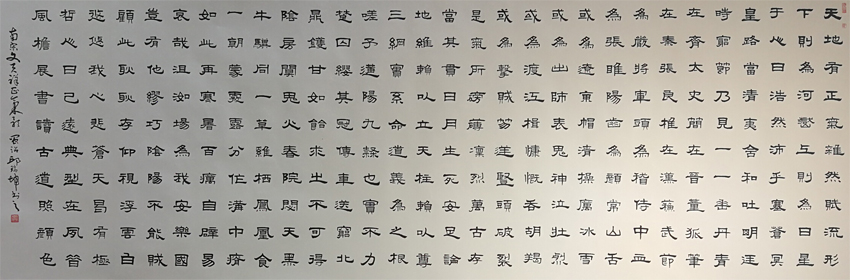 天地有正氣雜然賦流形
下則為河嶽上則為日星
于人曰浩然沛乎塞蒼冥
皇路當清夷含和吐明庭
時窮節乃見一一垂丹青
在齊太史簡在晉董狐筆
在秦張良椎在漢蘇武節
為嚴將軍頭為嵇侍中血
為張睢陽齒為顏常山舌
或為遼東帽清操厲冰雪
或為出師表鬼神泣壯烈
或為渡江楫慷慨吞胡羯
或為擊賊笏逆豎頭破裂
是氣所磅礴凜烈萬古存
當其貫日月生死安足論
地維賴以立天柱賴以尊
三綱實系命道義為之根
嗟予遘陽九隸也實不力
楚囚纓其冠傳車送窮北
鼎鑊甘如飴求之不可得
陰房闃鬼火春院閟天黑
牛驥同一皁雞棲鳳凰食
一朝蒙霧露分作溝中瘠
如此再寒暑百癘自辟易
哀哉沮洳場為我安樂國
豈有他繆巧陰陽不能賊
顧此耿耿存仰視浮雲白
悠悠我心悲蒼天曷有極
哲人日已遠典型在夙昔
風檐展書讀古道照顏色
南宋文天祥正氣歌